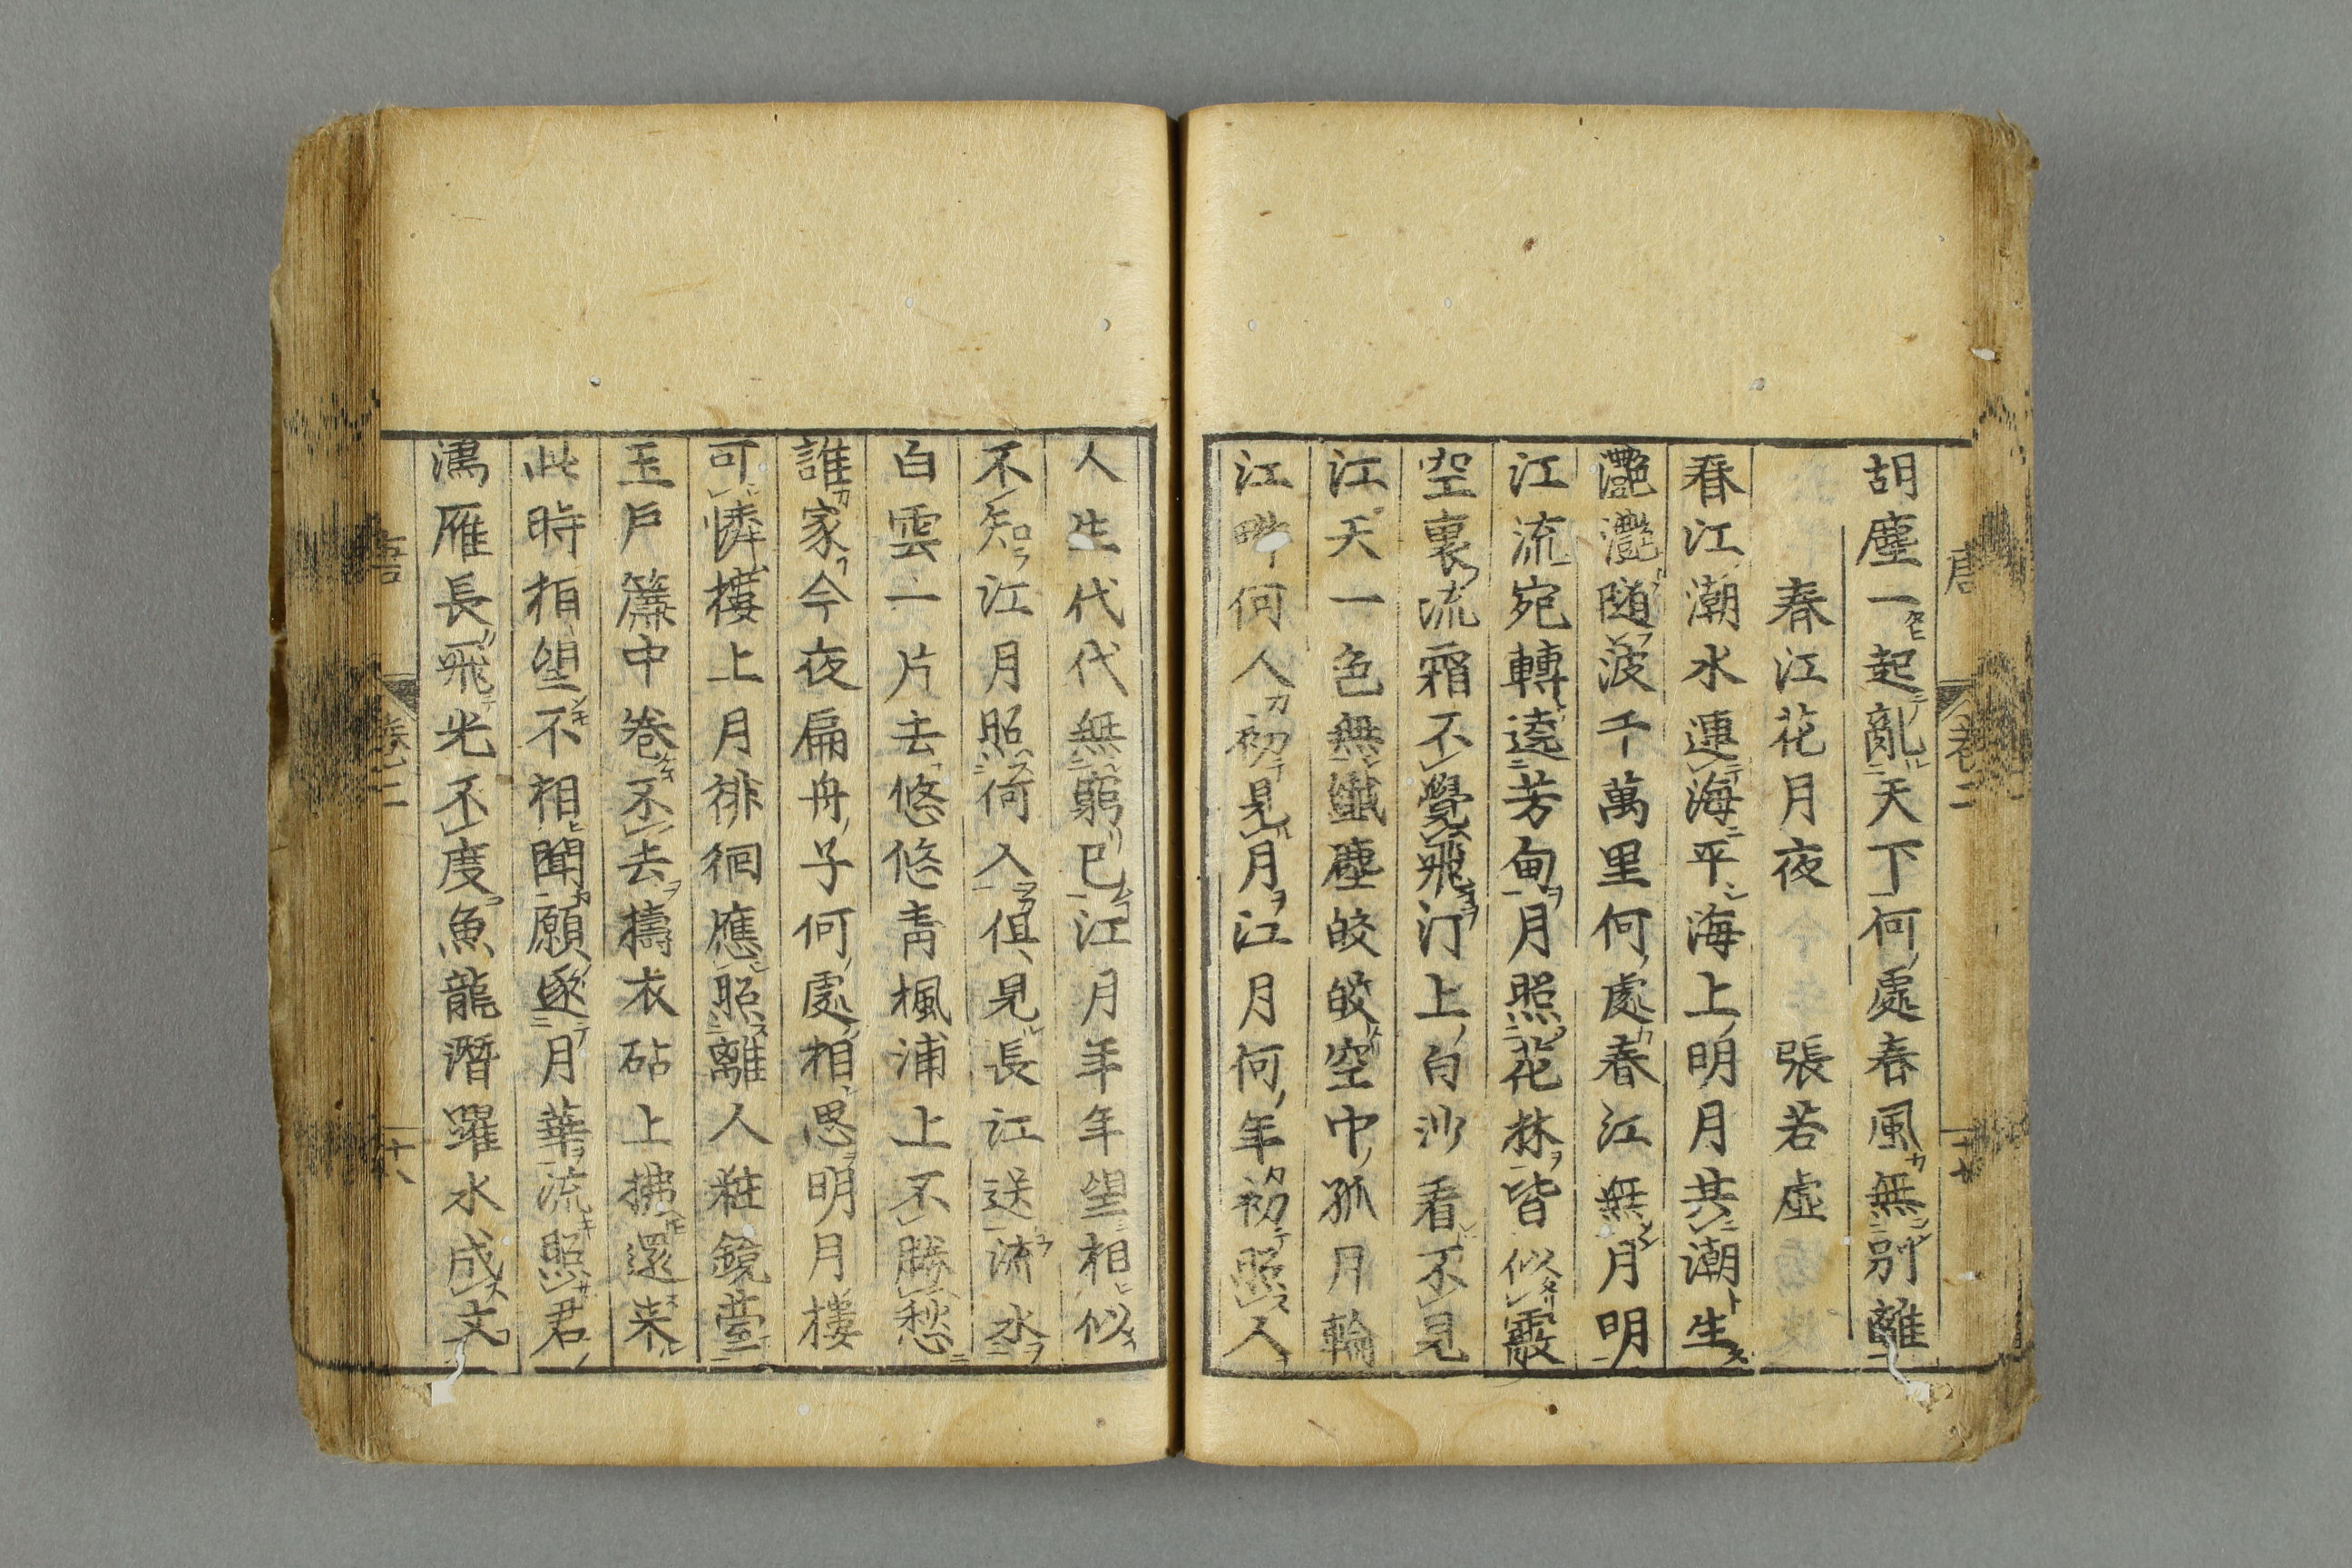 胡塵一起亂天下何處春風無別離
春江花月夜 張若虛
春江潮水連海平海上明月共潮生
灔灔隨波千萬里何處春江無月明
江流宛轉遶芳甸月照花林皆似霰
空裏流霜不覺飛汀上白沙看不見
江天一色無纖塵皎皎空中孤月輪
江畔何人初見月江月何年初照人
人生代代無窮已江月年年望相似
不知江月照何人但見長江送流水
白雲一片去悠悠青楓浦上不勝愁
誰家今夜扁舟子何處相思明月樓
可憐樓上月徘徊應照離人粧鏡臺
玉戶簾中卷不去擣衣砧上拂還来
此時相望不相聞願逐月華流照君
鴻雁長飛光不度魚龍潛躍水成文
唐
卷二
十七
卷二
十八